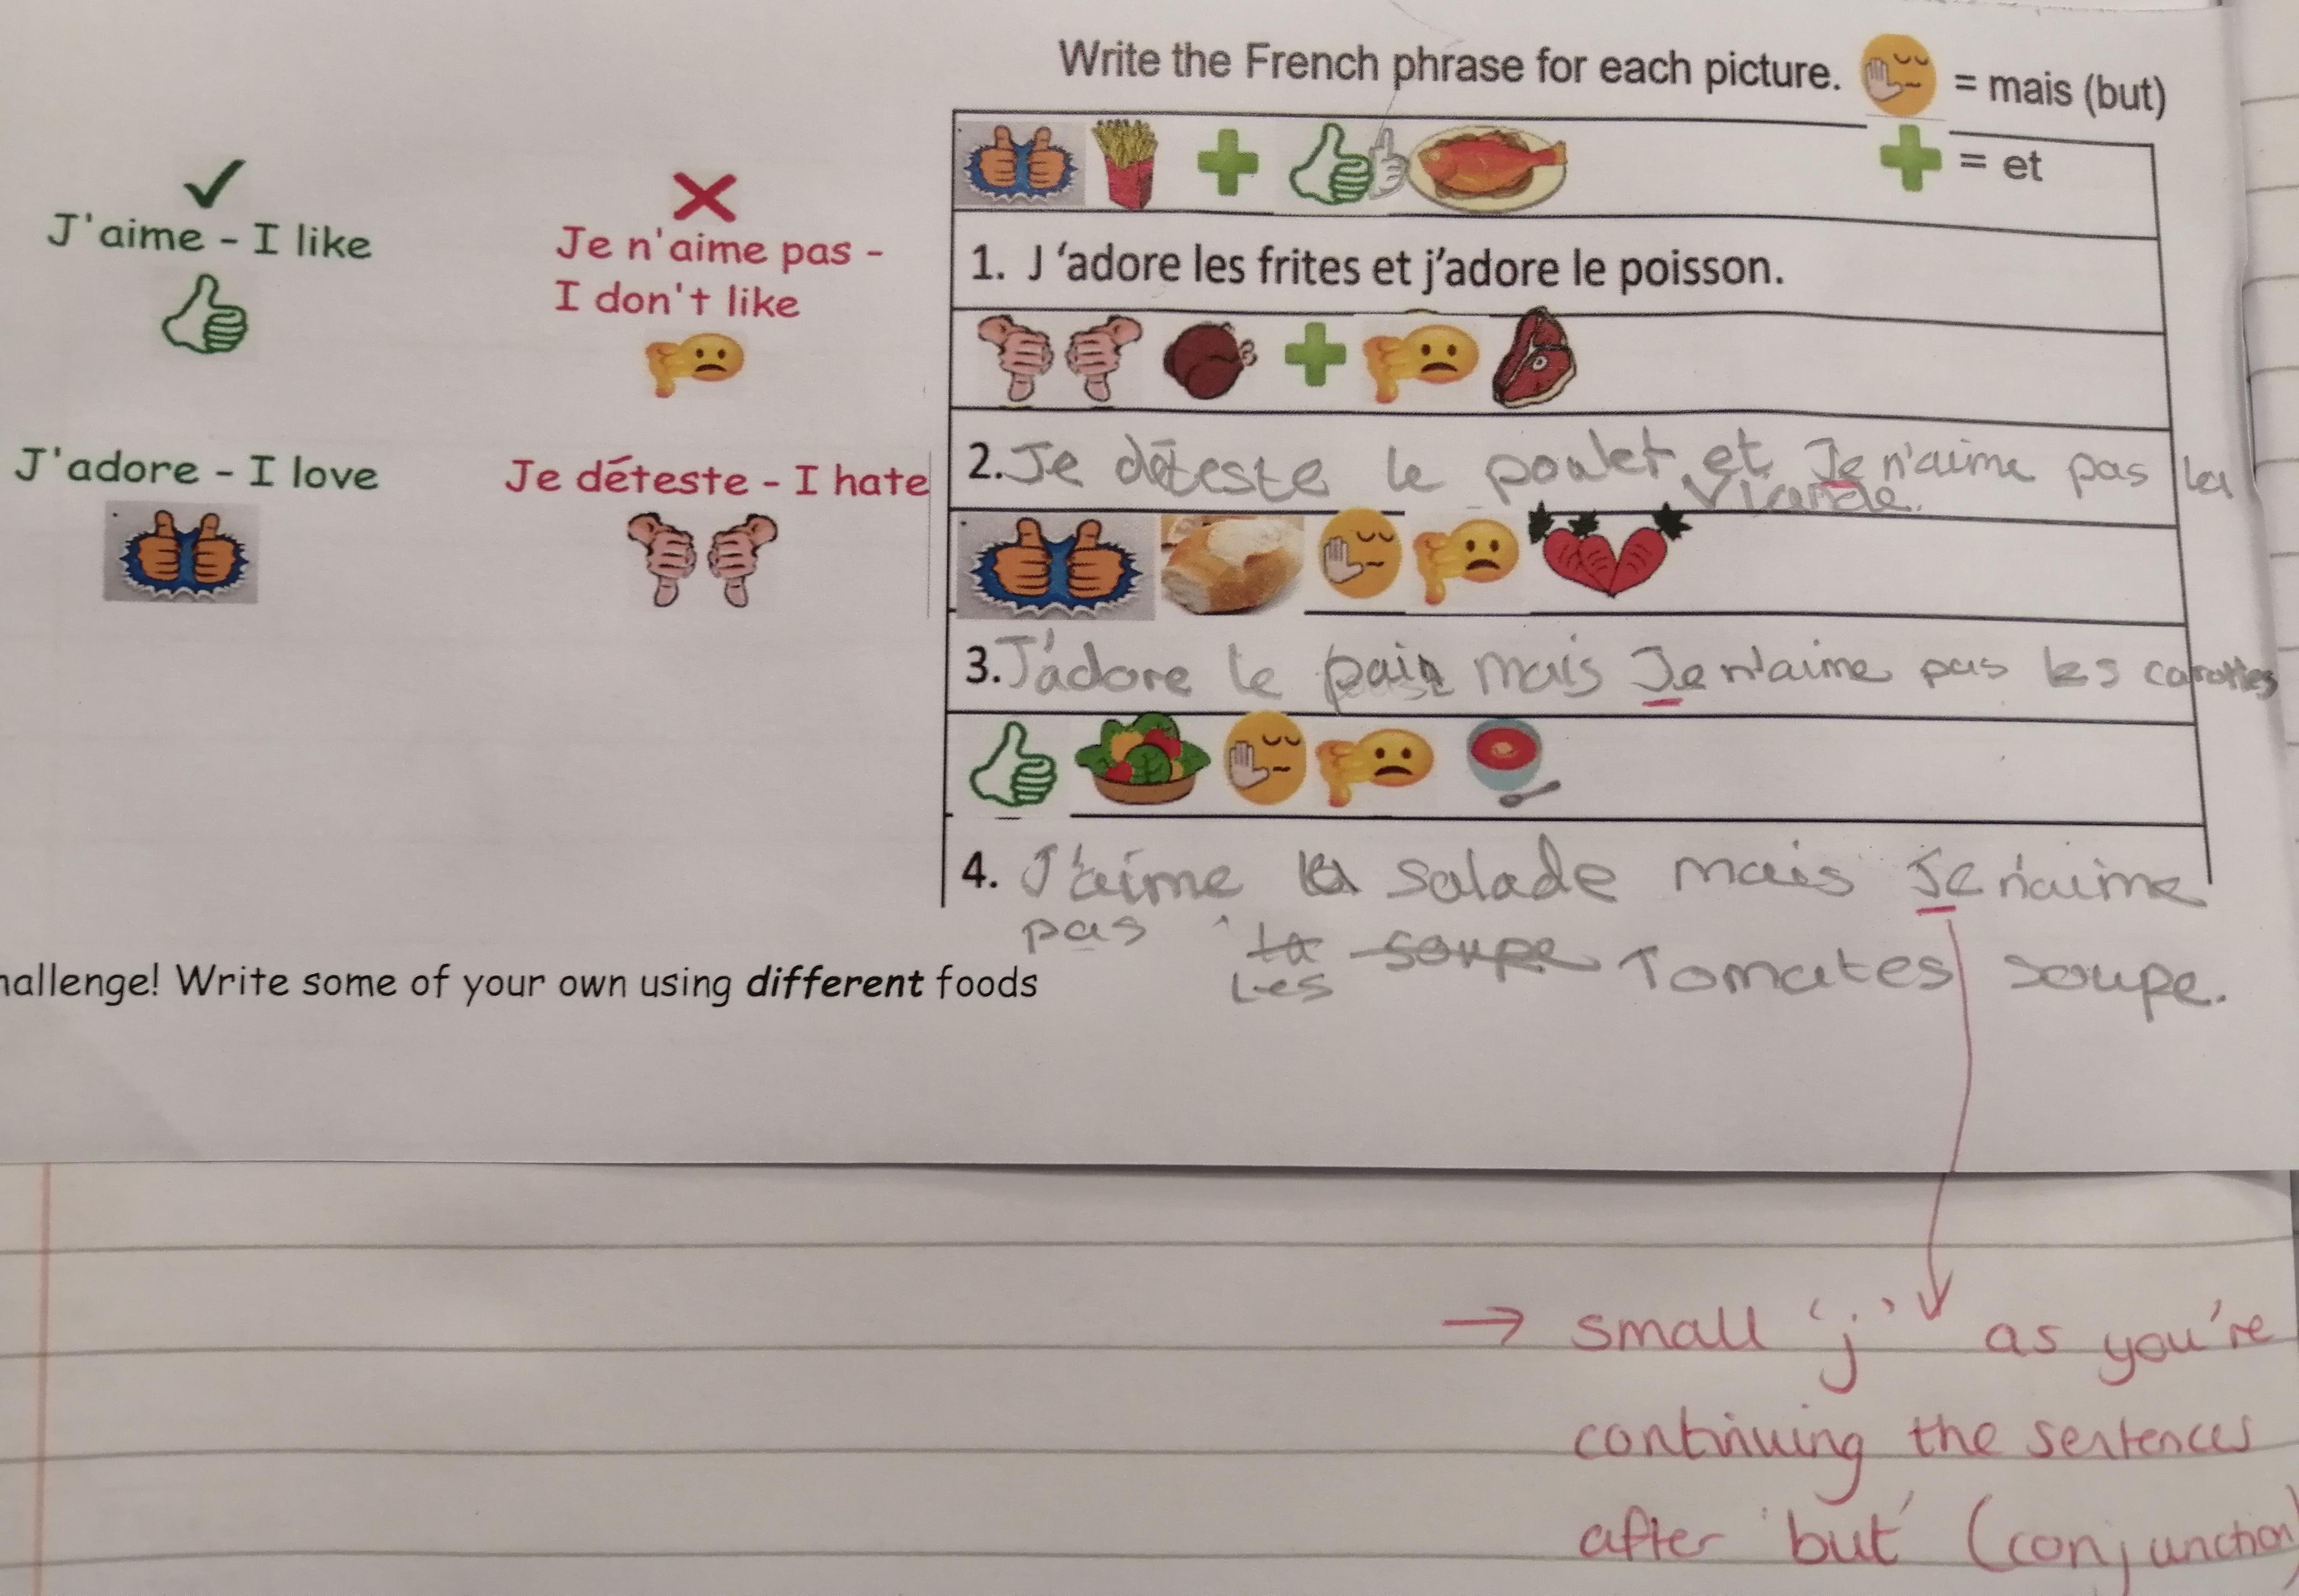 Write the French phrase for each picture. = mais (but)
= et
J'aime - I like
Je n'aime pas -
I don't like
J'adore - I love
Je déteste - I hate
1. J ‘adore les frites et j’adore le poisson.
2. Je déteste le poulet et Je n'aime pas la
viande.
3. J'adore le pain mais Je n'aime pas les carottes
4. J'aime la salade mais Je n'aime
pas la soupe Tomates soupe.
Les
hallenge! Write some of your own using different foods
→ small 'j' as you're
continuing the sentences
after 'but' (conjunction)